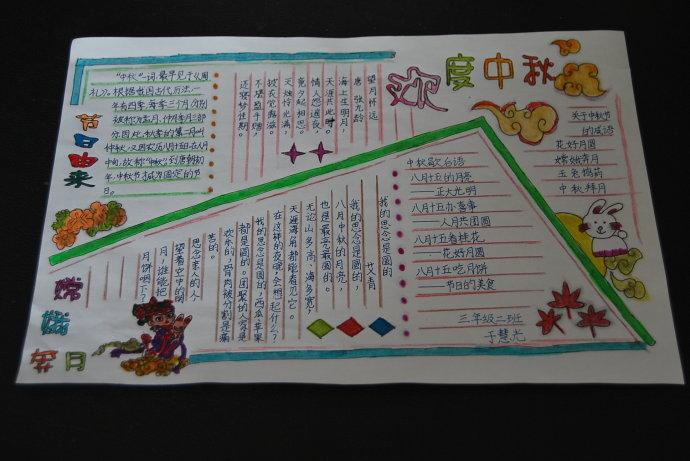 欢度中秋
节日由来
"中秋"一词,最早见于《周
礼》。根据我国古代历法,一
年有四季,每季三个月,分别
被称为孟月、仲月、季月三部
分,因此,秋季的第二月叫
仲秋,又因农历八月十五日,在八月
中旬,故称"中秋"。到唐朝初
年,中秋节才成为固定的节
日。
望月怀远
唐 张九龄
海上生明月,
天涯共此时。
情人怨遥夜,
竟夕起相思。
灭烛怜光满,
披衣觉露滋。
不堪盈手赠,
还寝梦佳期。
关于中秋节
的成语
花好月圆
嫦娥奔月
玉兔捣药
中秋拜月
中秋歇后语
八月十五的月亮
正大光明
八月十五办喜事
人月共团圆
八月十五看桂花
花好月圆
八月十五吃月饼
节日的美食
三年级二班
于慧光
我的思念是圆的
艾青
我的思念是圆的,
八月中秋的月亮,
也是最亮最圆的。
无论山多高、海多宽,
天涯海角都能看见它。
在这样的夜晚,会想起什么?
我的思念是圆的,西瓜、苹果
都是圆的。团聚的人家是
欢乐的,骨肉被分割是痛
苦的。
思念亲人的人
望着空中的明
月,谁能把
月饼咽下?
嫦娥奔月